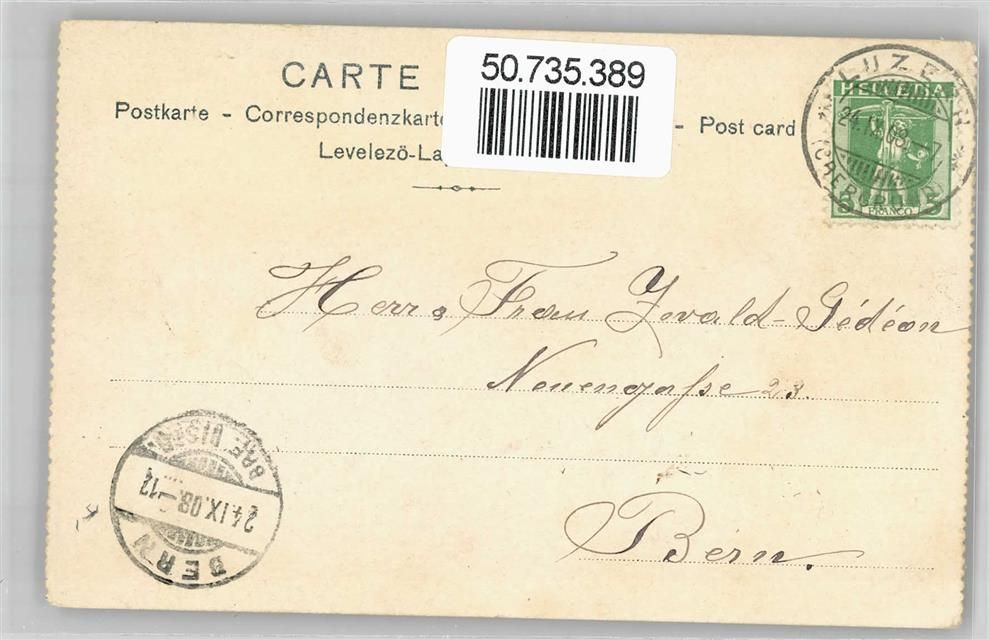 CARTE
50.735.389
Postkarte - Correspondenzkarte - Post card
Levelező-La
LUZERN
HELVETIA
24.IX.08.-7
5 FRANCO 5
Herr & Frau Zwald-Gédéon
Neuengasse 23.
Bern.
BERN
24.IX.08.-12